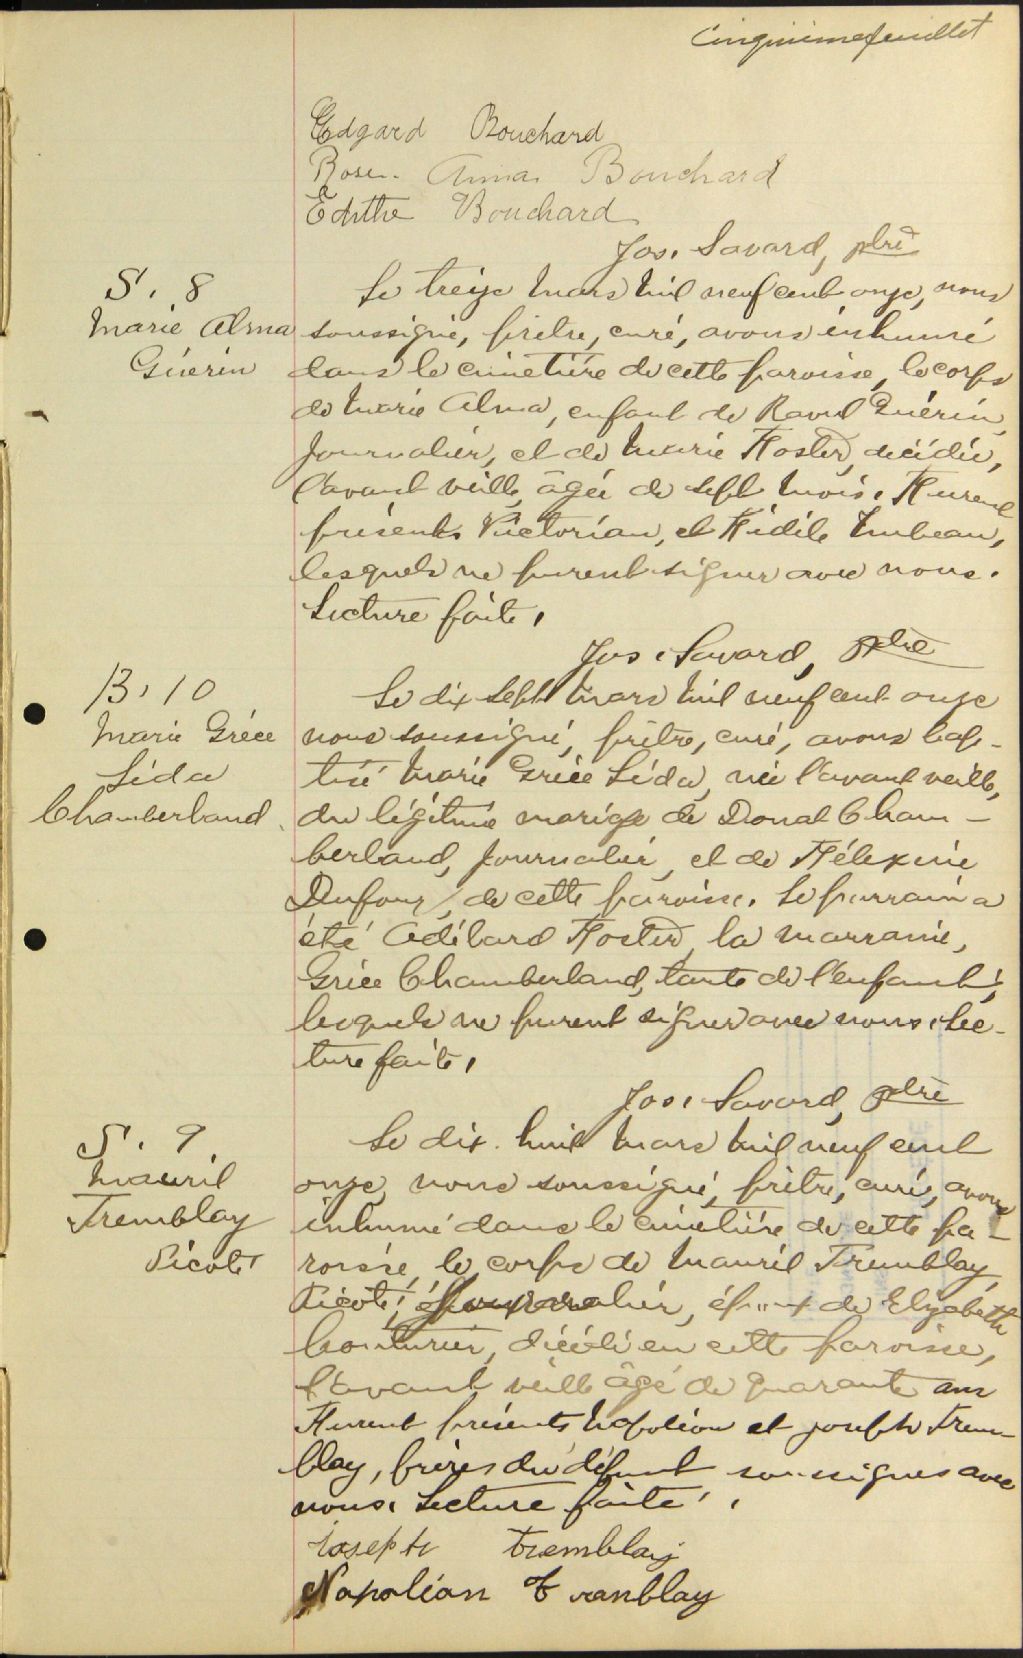 Cinquième feuillet
Edgard Bouchard
Rose. Anna Bouchard
Edithe Bouchard
Jos. Savard, ptre
S. 8
Marie Alma
Guérin
Le treize Mars Mil neuf cent onze, nous
soussigné, prêtre, curé, avons inhumé
dans le cimetière de cette paroisse, le corps
de Marie Alma, enfant de Raoul Guérin,
Journalier, et de Marie Foster, décédée,
l'avant veille, âgée de sept mois. Furent
présents Victorian, et Fidèle Imbeau,
lesquels ne purent signer avec nous.
Lecture faite,
Jos. Savard, ptre
B. 10
Marie Grèce
Léda
Chamberland
Le dix sept Mars Mil neuf cent onze
nous soussigné, prêtre, curé, avons bap-
tisé Marie Grèce Léda, née l'avant veille,
du légitime mariage de Donat Cham-
berland, Journalier, et de Félexine
Dufour, de cette paroisse. Le parrain a
été Adélard Foster, la marraine,
Grèce Chamberland, tante de l'enfant,
lesquels ne purent signer avec nous. Lec-
ture faite,
Jos. Savard, ptre
S. 9
Mauril
Tremblay
Picoté
Le dix huit Mars Mil neuf cent
onze, nous soussigné, prêtre, curé, avons
inhumé dans le cimetière de cette pa-
roisse, le corps de Mauril Tremblay,
Picoté, journalier, époux de Elizabeth
Couturier, décédé en cette paroisse,
l'avant veille âgé de quarante ans
Furent présents Napoléon et joseph Trem-
blay, frères du défunt soussignés avec
nous. Lecture faite.
Joseph tremblay
Napolian tranblay